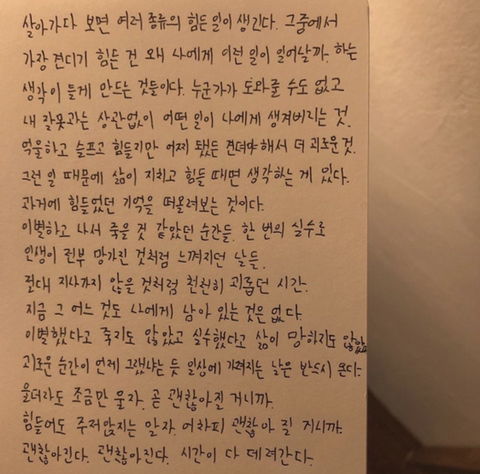 살아가다 보면 여러 종류의 힘든 일이 생긴다. 그중에서
가장 견디기 힘든 건 왜 나에게 이런 일이 일어날까. 하는
생각이 들게 만드는 것들이다. 누군가가 도와줄 수도 없고
내 잘못과는 상관없이 어떤 일이 나에게 생겨버리는 것.
억울하고 슬프고 힘들지만 어찌 됐든 견뎌야 해서 더 괴로운 것.
그런 일 때문에 삶이 지치고 힘들 때면 생각하는 게 있다.
과거에 힘들었던 기억을 떠올려보는 것이다.
이별하고 나서 죽을 것 같았던 순간들. 한 번의 실수로
인생이 전부 망가진 것처럼 느껴지던 날들.
절대 지나가지 않을 것처럼 천천히 괴롭던 시간.
지금 그 어느 것도 나에게 남아 있는 것은 없다.
이별했다고 죽지도 않았고 실수했다고 삶이 망하지도 않았다.
괴로운 순간이 언제 그랬냐는 듯 일상에 가려지는 날은 반드시 온다.
울더라도 조금만 울자. 곧 괜찮아질 거니까.
힘들어도 주저앉지는 말자. 어차피 괜찮아 질 거니까.
괜찮아진다. 괜찮아진다. 시간이 다 데려간다.